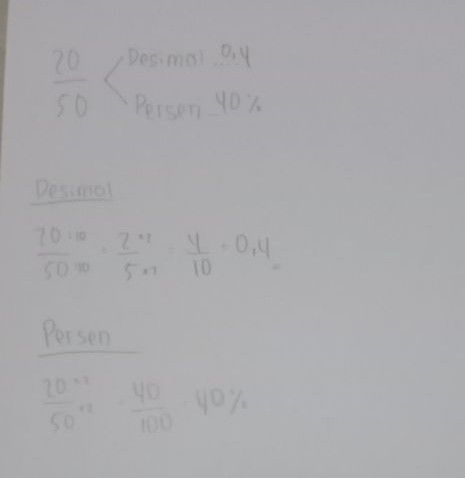 20/50 < Desimal 0,4
Persen 40%
Desimal
20 :10/50 :10 = 2 ×2/5 ×2 = 4/10 = 0,4
Persen
20 ×2/50 ×2 = 40/100 = 40%